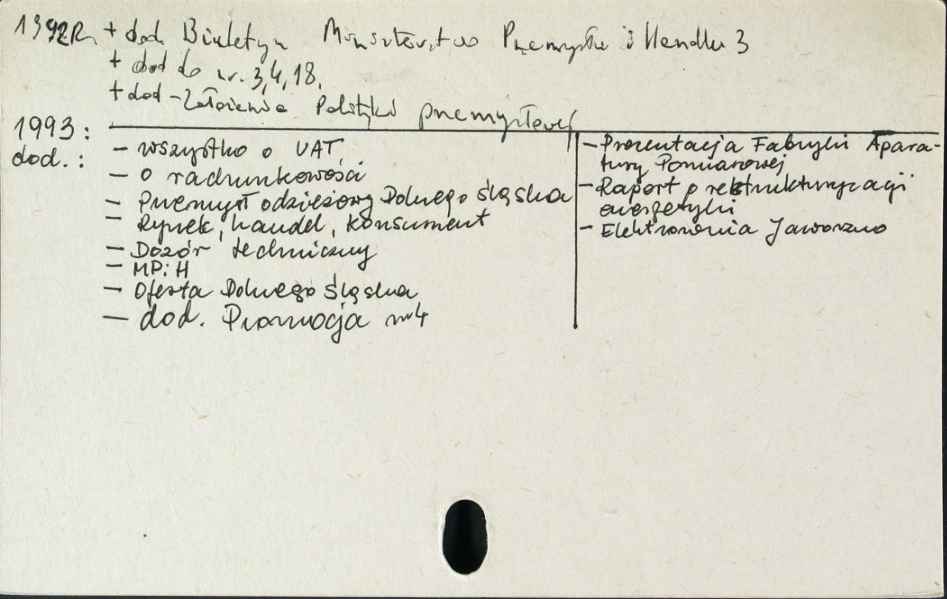 1992R. + dod. Biuletyn Ministerstwa Przemysłu i Handlu 3
+ dod do nr. 3,4,18.
+ dod - Założenia Polityki przemysłowej
1993:
dod.:
- wszystko o VAT
- o rachunkowości
- Przemysł odzieżowy Dolnego Śląska
- Rynek, handel, konsument
- Dozór techniczny
- MPiH
- Oferta Dolnego Śląska
- dod. Promocja nr 4
- Prezentacja Fabryki Apara-
tury Pomiarowej
- Raport o restrukturyzacji
energetyki
- Elektrownia Jaworzno